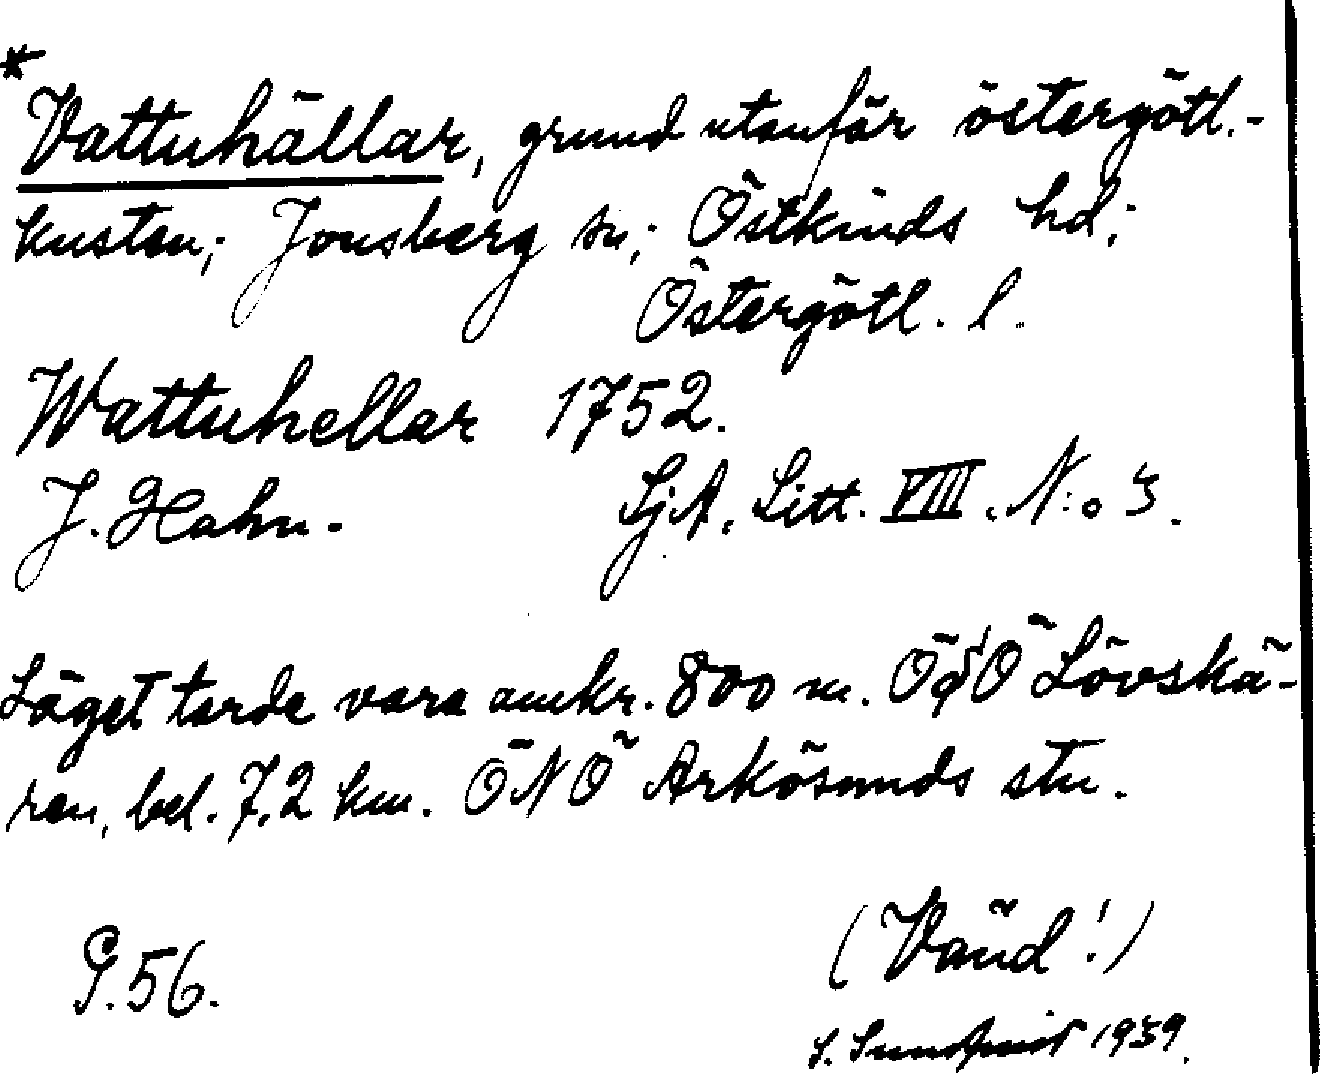 *
Vattuhällar, grund utanför östergötl.-
kusten; Jonsberg sn; Östkinds hd;
Östergötl. l.
Wattuhellar 1752.
J. Hahn. SjA. Litt. VIII. N:o 3.
Läget torde vara omkr. 800 m. ÖSÖ Lövskä-
ren, bel. 7,2 km. ÖNÖ Arkösunds stn.
(Vänd!)
G.56.
S. Sundqvist 1939.